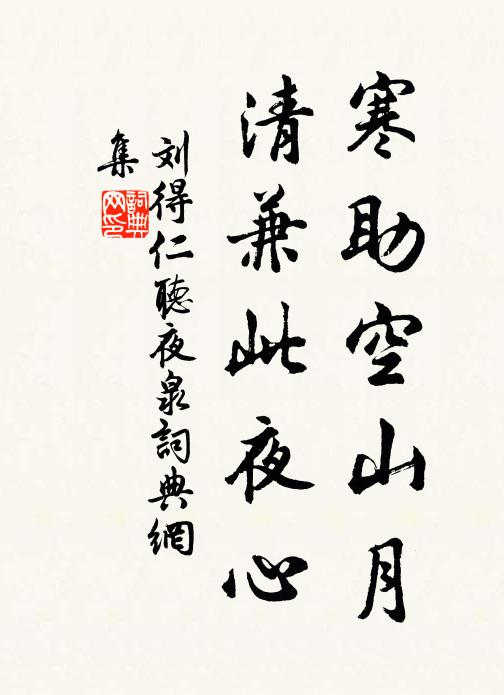 寒助空山月
清兼此夜心
刘得仁聽夜泉詞典網
集
詞典
网印